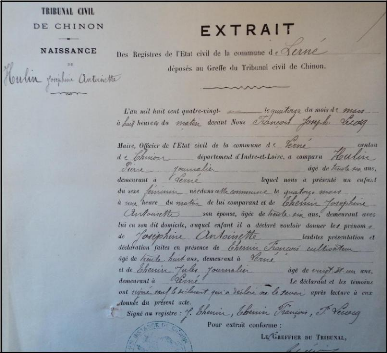 TRIBUNAL CIVIL
DE CHINON
NAISSANCE
DE
Hulin Josephine Antoinette
EXTRAIT
Des Registres de l'Etat civil de la commune de Lerné
déposés au Greffe du Tribunal civil de Chinon.
L'an mil huit cent quatre-vingt- le quatorze du mois de mars
à huit heures du matin devant Nous François Joseph Lecocq
Maire, Officier de l'Etat civil de la commune de Lerné canton
de Chinon département d'Indre-et-Loire, a comparu Hulin
Pierre journalier âgé de trente ans,
demeurant à Lerné lequel nous a présenté un enfant
du sexe féminin né dans cette commune le quatorze mars
à une heure du matin de lui comparant et de Chemin Josephine
Antoinette son épouse, âgée de ans, demeurant avec
lui en son domicile, auquel enfant il a déclaré vouloir donner les prénoms
de Josephine Antoinette lesdites présentation et
déclaration faites en présence de Chemin François cultivateur
âgé de trente huit ans, demeurant à Lerné
et de Chemin Jules journalier âgé de vingt ans,
demeurant à Lerné Le déclarant et les témoins
ont signé le déclarant qui a déclaré ne le savoir après lecture à eux
donnée du présent acte.
Signé au registre : J. Chemin, Chemin François, F. Lecocq
Pour extrait conforme :
LE GREFFIER DU TRIBUNAL,